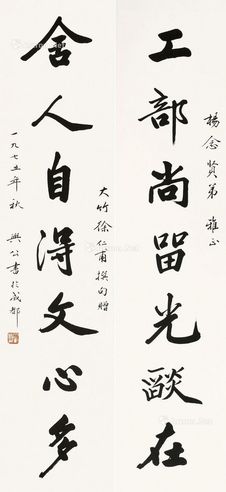 楊念賢弟 雅正
工部尚留光燄在
大竹徐仁甫撰句贈
舍人自得文心多
一九七五年秋 興公書於成都